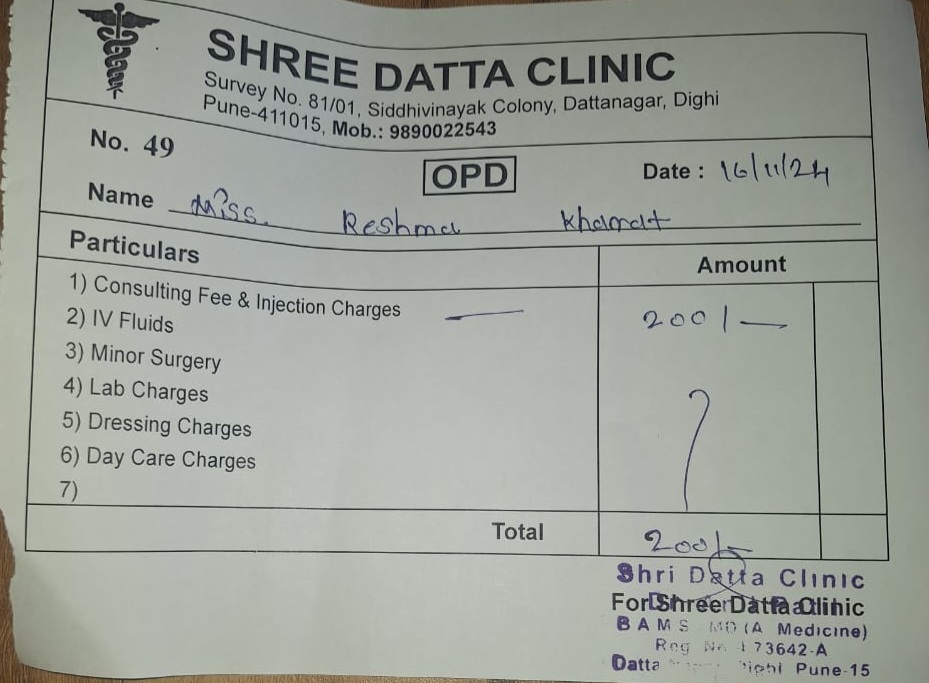 SHREE DATTA CLINIC
Survey No. 81/01, Siddhivinayak Colony, Dattanagar, Dighi
Pune-411015, Mob.: 9890022543
No. 49
OPD
Date : 16/11/24
Name Miss. Reshma Khamat
Particulars Amount
1) Consulting Fee & Injection Charges — 200/-
2) IV Fluids
3) Minor Surgery
4) Lab Charges
5) Dressing Charges
6) Day Care Charges
7)
Total 200/-
Shri Datta Clinic
For Shree Datta Clinic
BAMS MD (A Medicine)
Reg No 73642-A
Datta Dighi Pune-15